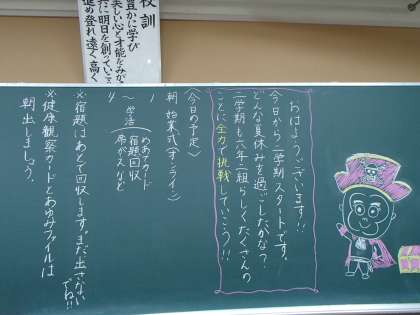 校訓
豊かに学び
美しい心と才能をみが
共に明日を創っていこ
進め登れ遠く高く
おはようございます!!
今日から二学期スタートです。
どんな夏休みを過ごしたかな?
二学期も六年二組らしくたくさんの
ことに全力で挑戦していこう!!
〈今日の予定〉
朝 始業式(オンライン)
1
〜 学活
4
めあてカード
宿題回収
席がえなど
※宿題はあとで回収します。まだ出さない
でね!!
※健康観察カードとあゆみファイルは
朝出しましょう。